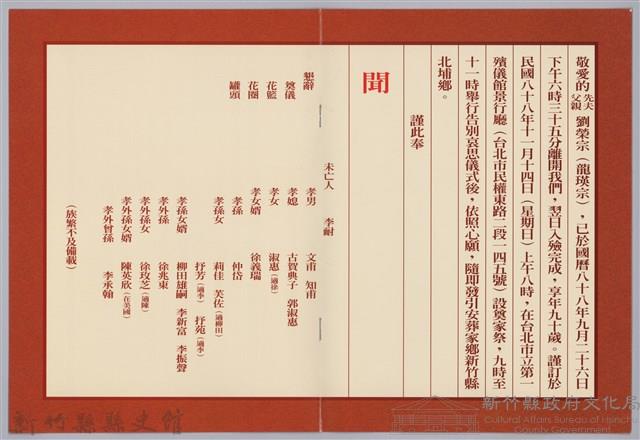 敬愛的先夫父親劉榮宗（龍瑛宗），已於國曆八十八年九月二十六日
下午六時三十五分離開我們，翌日入殮完成，享年九十歲。謹訂於
民國八十八年十一月十四日（星期日）上午八時，在台北市立第一
殯儀館景行廳（台北市民權東路二段一四五號）設奠家祭，九時至
十一時舉行告別哀思儀式後，依照心願，隨即發引安葬家鄉新竹縣
北埔鄉。
謹此奉
聞
懇辭
奠儀
花籃
花圈
罐頭
未亡人 李耐
孝男 文甫 知甫
孝媳 古賀典子 郭淑惠
孝女 淑惠（適徐）
孝女婿 徐義瑞
孝孫 仲岱
孝孫女 莉佳 芙佐（適柳田）
抒芳（適李） 抒苑（適李）
孝孫女婿 柳田雄嗣 李新富 李振聲
孝外孫 徐兆東
孝外孫女 徐玫芝（適陳）
孝外孫女婿 陳英欣（在美國）
孝外曾孫 李承翰
（族繁不及備載）
新竹縣縣史館
新竹縣政府文化局
Cultural Affairs Bureau of Hsinchu
County Government